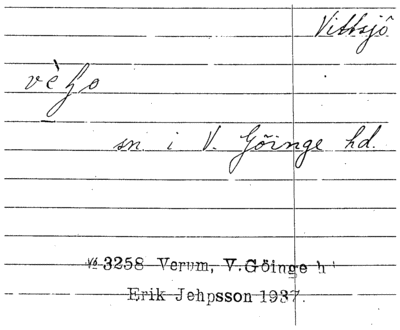 Vittsjö
vè̱ʒo
sn i V. Göinge hd.
3258 Verum, V. Göinge h
Erik Jehpsson 1937.